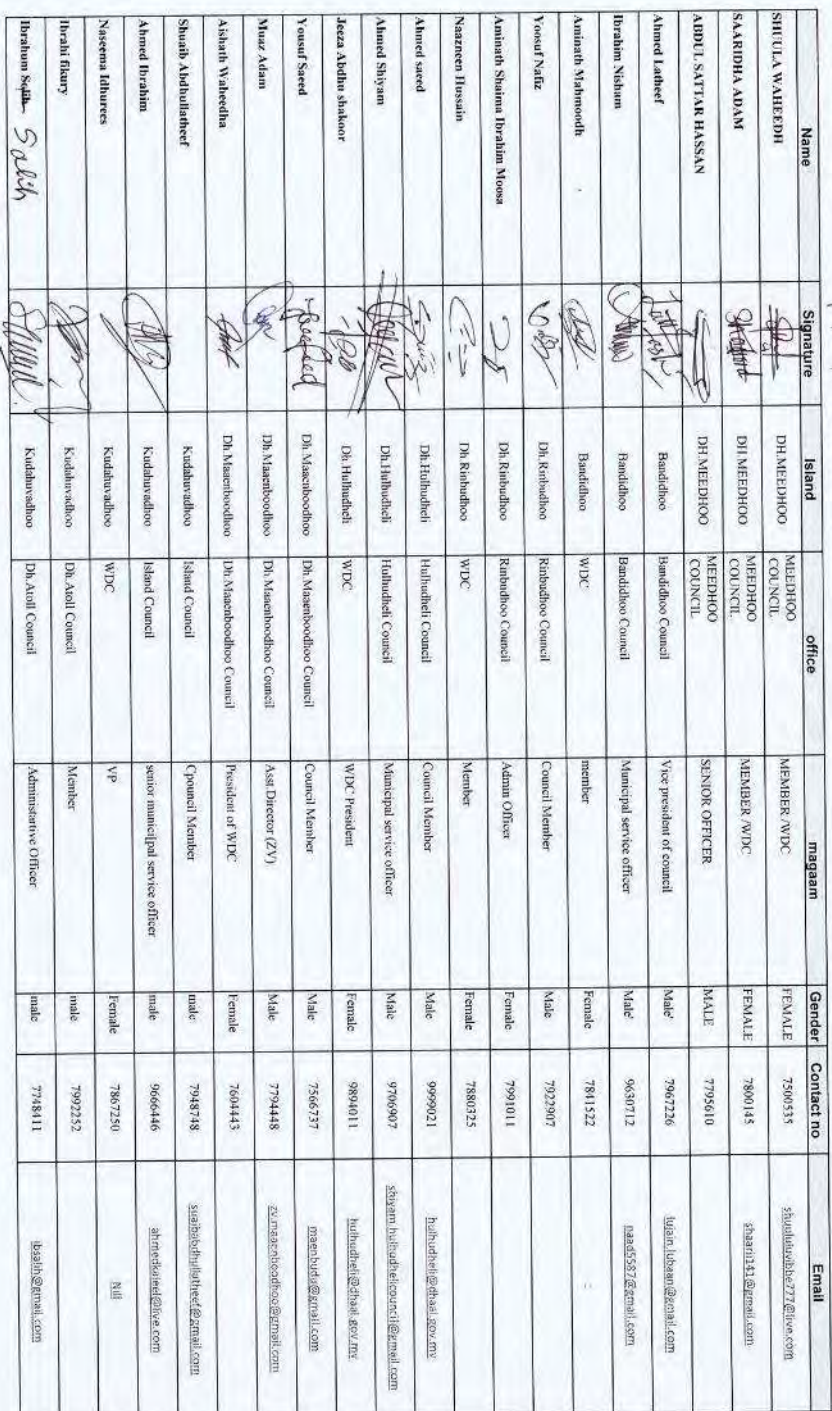 Name Signature Island office magaam Gender Contact no Email
SHUULA WAHEEDH DH.MEEDHOO MEEDHOO COUNCIL MEMBER /WDC FEMALE 7500535 shuululuvibbe777@live.com
SAARIDHA ADAM DH MEEDHOO MEEDHOO COUNCIL MEMBER /WDC FEMALE 7800145 shaarii141@gmail.com
ABDUL SATTAR HASSAN DH.MEEDHOO MEEDHOO COUNCIL SENIOR OFFICER MALE 7795610
Ahmed Latheef Bandidhoo Bandidhoo Council Vice president of council Male' 7967226 lujain.lubaan@gmail.com
Ibrahim Nisham Bandidhoo Bandidhoo Council Municipal service officer Male' 9630712 naad5587@gmail.com
Aminath Mahmoodh Bandidhoo WDC member Female 7841522
Yoosuf Nafiz Dh.Rinbudhoo Rinbudhoo Council Council Member Male 7922907
Aminath Shaima Ibrahim Moosa Dh Rinbudhoo Rinbudhoo Council Admin Officer Female 7991011
Naazneen Hussain Dh Rinbudhoo WDC Member Female 7880325
Ahmed saeed Dh.Hulhudheli Hulhudheli Council Council Member Male 9999021 hulhudheli@dhaal.gov.mv
Ahmed Shiyam Dh.Hulhudheli Hulhudheli Council Municipal service officer Male 9706907 shiyam.hulhudhelicouncil@gmail.com
Jeeza Abdhu shakoor Dh.Hulhudheli WDC WDC President Female 9894011 hulhudheli@dhaal.gov.mv
Yousuf Saeed Dh.Maaenboodhoo Dh.Maaenboodhoo Council Council Member Male 7566737 maenbudu@gmail.com
Muaz Adam Dh.Maaenboodhoo Dh.Maaenboodhoo Council Asst.Director (ZV) Male 7794448 zv.maaenboodhoo@gmail.com
Aishath Waheedha Dh.Maaenboodhoo Dh.Maaenboodhoo Council President of WDC Female 7604443
Shuaib Abdhullatheef Kudahuvadhoo Island Council Cpouncil Member male 7948748 suaibabdhullatheef@gmail.com
Ahmed Ibrahim Kudahuvadhoo Island Council senior municipal service officer male 9666446 ahmedkuleel@live.com
Naseema Idhurees Kudahuvadhoo WDC VP Female 7867250 Nill
Ibrahi fikury Kudahuvadhoo Dh.Atoll Council Member male 7992252
Ibrahum Salih Kudahuvadhoo Dh.Atoll Council Administartive Officer male 7748411 ibsalih@gmail.com